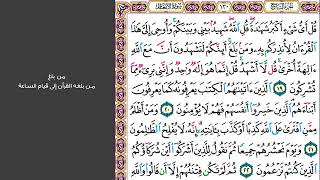 ١٣٠
قُلْ أَىُّ شَىْءٍ أَكْبَرُ شَهَـٰدَةً قُلِ ٱللَّهُ شَهِيدٌۢ بَيْنِى وَبَيْنَكُمْ وَأُوحِىَ إِلَىَّ هَـٰذَا
ٱلْقُرْءَانُ لِأُنذِرَكُم بِهِۦ وَمَنۢ بَلَغَ أَئِنَّكُمْ لَتَشْهَدُونَ أَنَّ مَعَ ٱللَّهِ
ءَالِهَةً أُخْرَىٰ قُل لَّآ أَشْهَدُ قُلْ إِنَّمَا هُوَ إِلَـٰهٌ وَٰحِدٌ وَإِنَّنِى بَرِىٓءٌ مِّمَّا
تُشْرِكُونَ ١٩ ٱلَّذِينَ ءَاتَيْنَـٰهُمُ ٱلْكِتَـٰبَ يَعْرِفُونَهُۥ كَمَا يَعْرِفُونَ
أَبْنَآءَهُمُ ٱلَّذِينَ خَسِرُوٓا۟ أَنفُسَهُمْ فَهُمْ لَا يُؤْمِنُونَ ٢٠ وَمَنْ أَظْلَمُ
مِمَّنِ ٱفْتَرَىٰ عَلَى ٱللَّهِ كَذِبًا أَوْ كَذَّبَ بِـَٔايَـٰتِهِۦٓ إِنَّهُۥ لَا يُفْلِحُ ٱلظَّـٰلِمُونَ
٢١ وَيَوْمَ نَحْشُرُهُمْ جَمِيعًا ثُمَّ نَقُولُ لِلَّذِينَ أَشْرَكُوٓا۟ أَيْنَ شُرَكَآؤُكُمُ
ٱلَّذِينَ كُنتُمْ تَزْعُمُونَ ٢٢ ثُمَّ لَمْ تَكُن فِتْنَتُهُمْ إِلَّآ أَن قَالُوا۟ وَٱللَّهِ
من بلغ
من بلغه القرآن إلى قيام الساعة